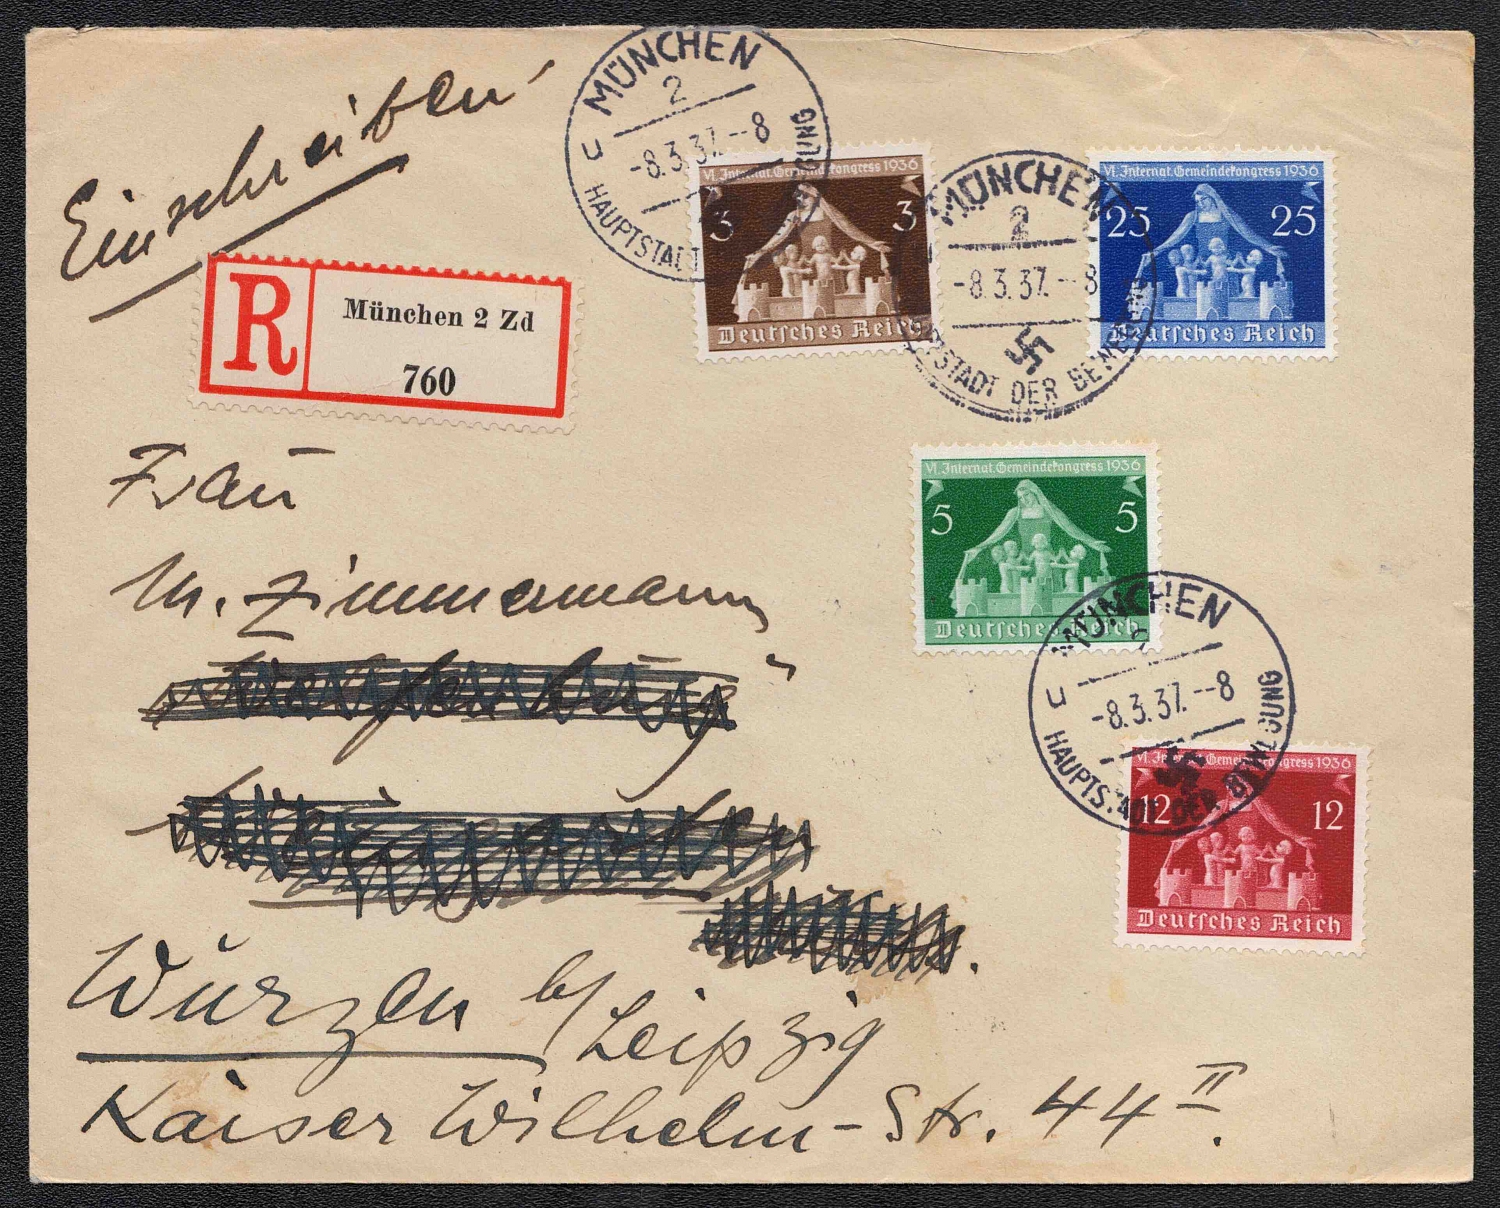 Einschreiben
R
München 2 Zd
760
MÜNCHEN
2
-8.3.37.--8
u
HAUPTSTADT BEWEGUNG
VI. Internat. Gemeindekongress 1936
3 3
Deutsches Reich
MÜNCHEN
2
-8.3.37.--8
HAUPTSTADT DER BEWEGUNG
VI. Internat. Gemeindekongress 1936
25 25
Deutsches Reich
VI. Internat. Gemeindekongress 1936
5 5
Deutsches Reich
MÜNCHEN
u
-8.3.37.--8
HAUPTSTADT DER BEWEGUNG
VI. Internat. Gemeindekongress 1936
12 12
Deutsches Reich
Frau
M. Zimmermann
Wurzen b/Leipzig
Kaiser Wilhelm-Str. 44 II.